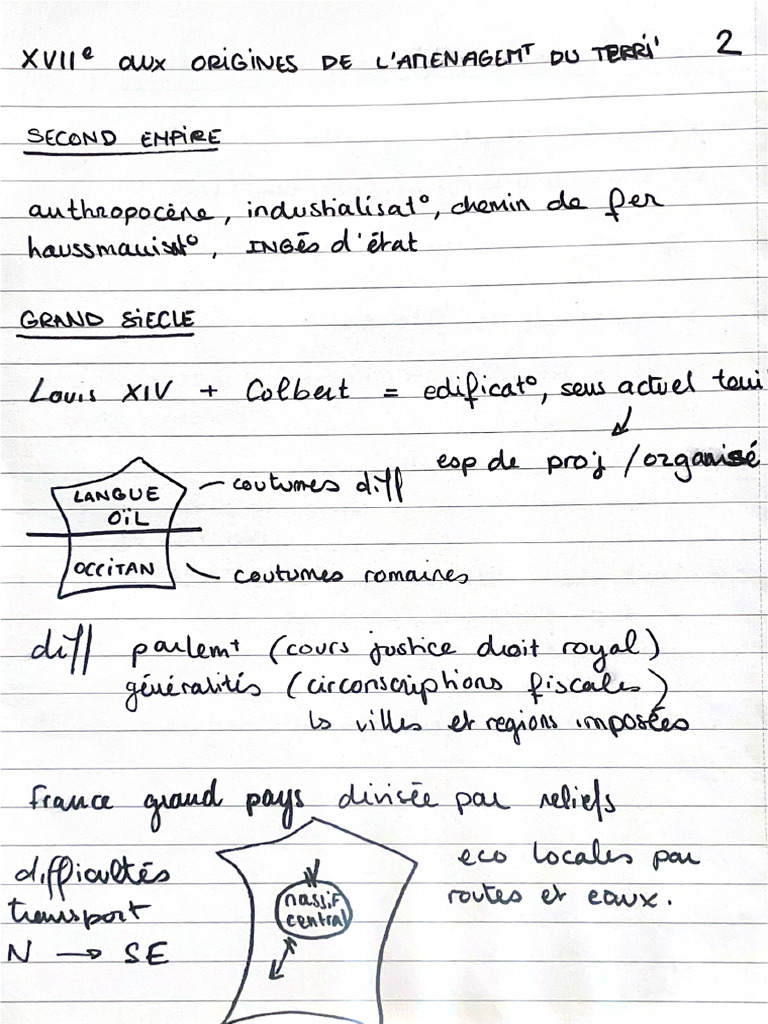 XVIIe aux ORIGINES DE L'AMENAGEMT DU TERRI' 2
SECOND EMPIRE
anthropocène, industrialisat°, chemin de fer
haussmanisat°, INGÉs d'état
GRAND SIECLE
Louis XIV + Colbert = edificat°, sens actuel terri
esp de proj / organisé
LANGUE OÏL — coutumes diff
OCCITAN — coutumes romaines
diff parlemt (cours justice droit royal)
généralités (circonscriptions fiscales)
↳ villes et regions imposées
France grand pays divisée par reliefs
difficultés transport N → SE
massif central
eco locales par
routes et eaux.